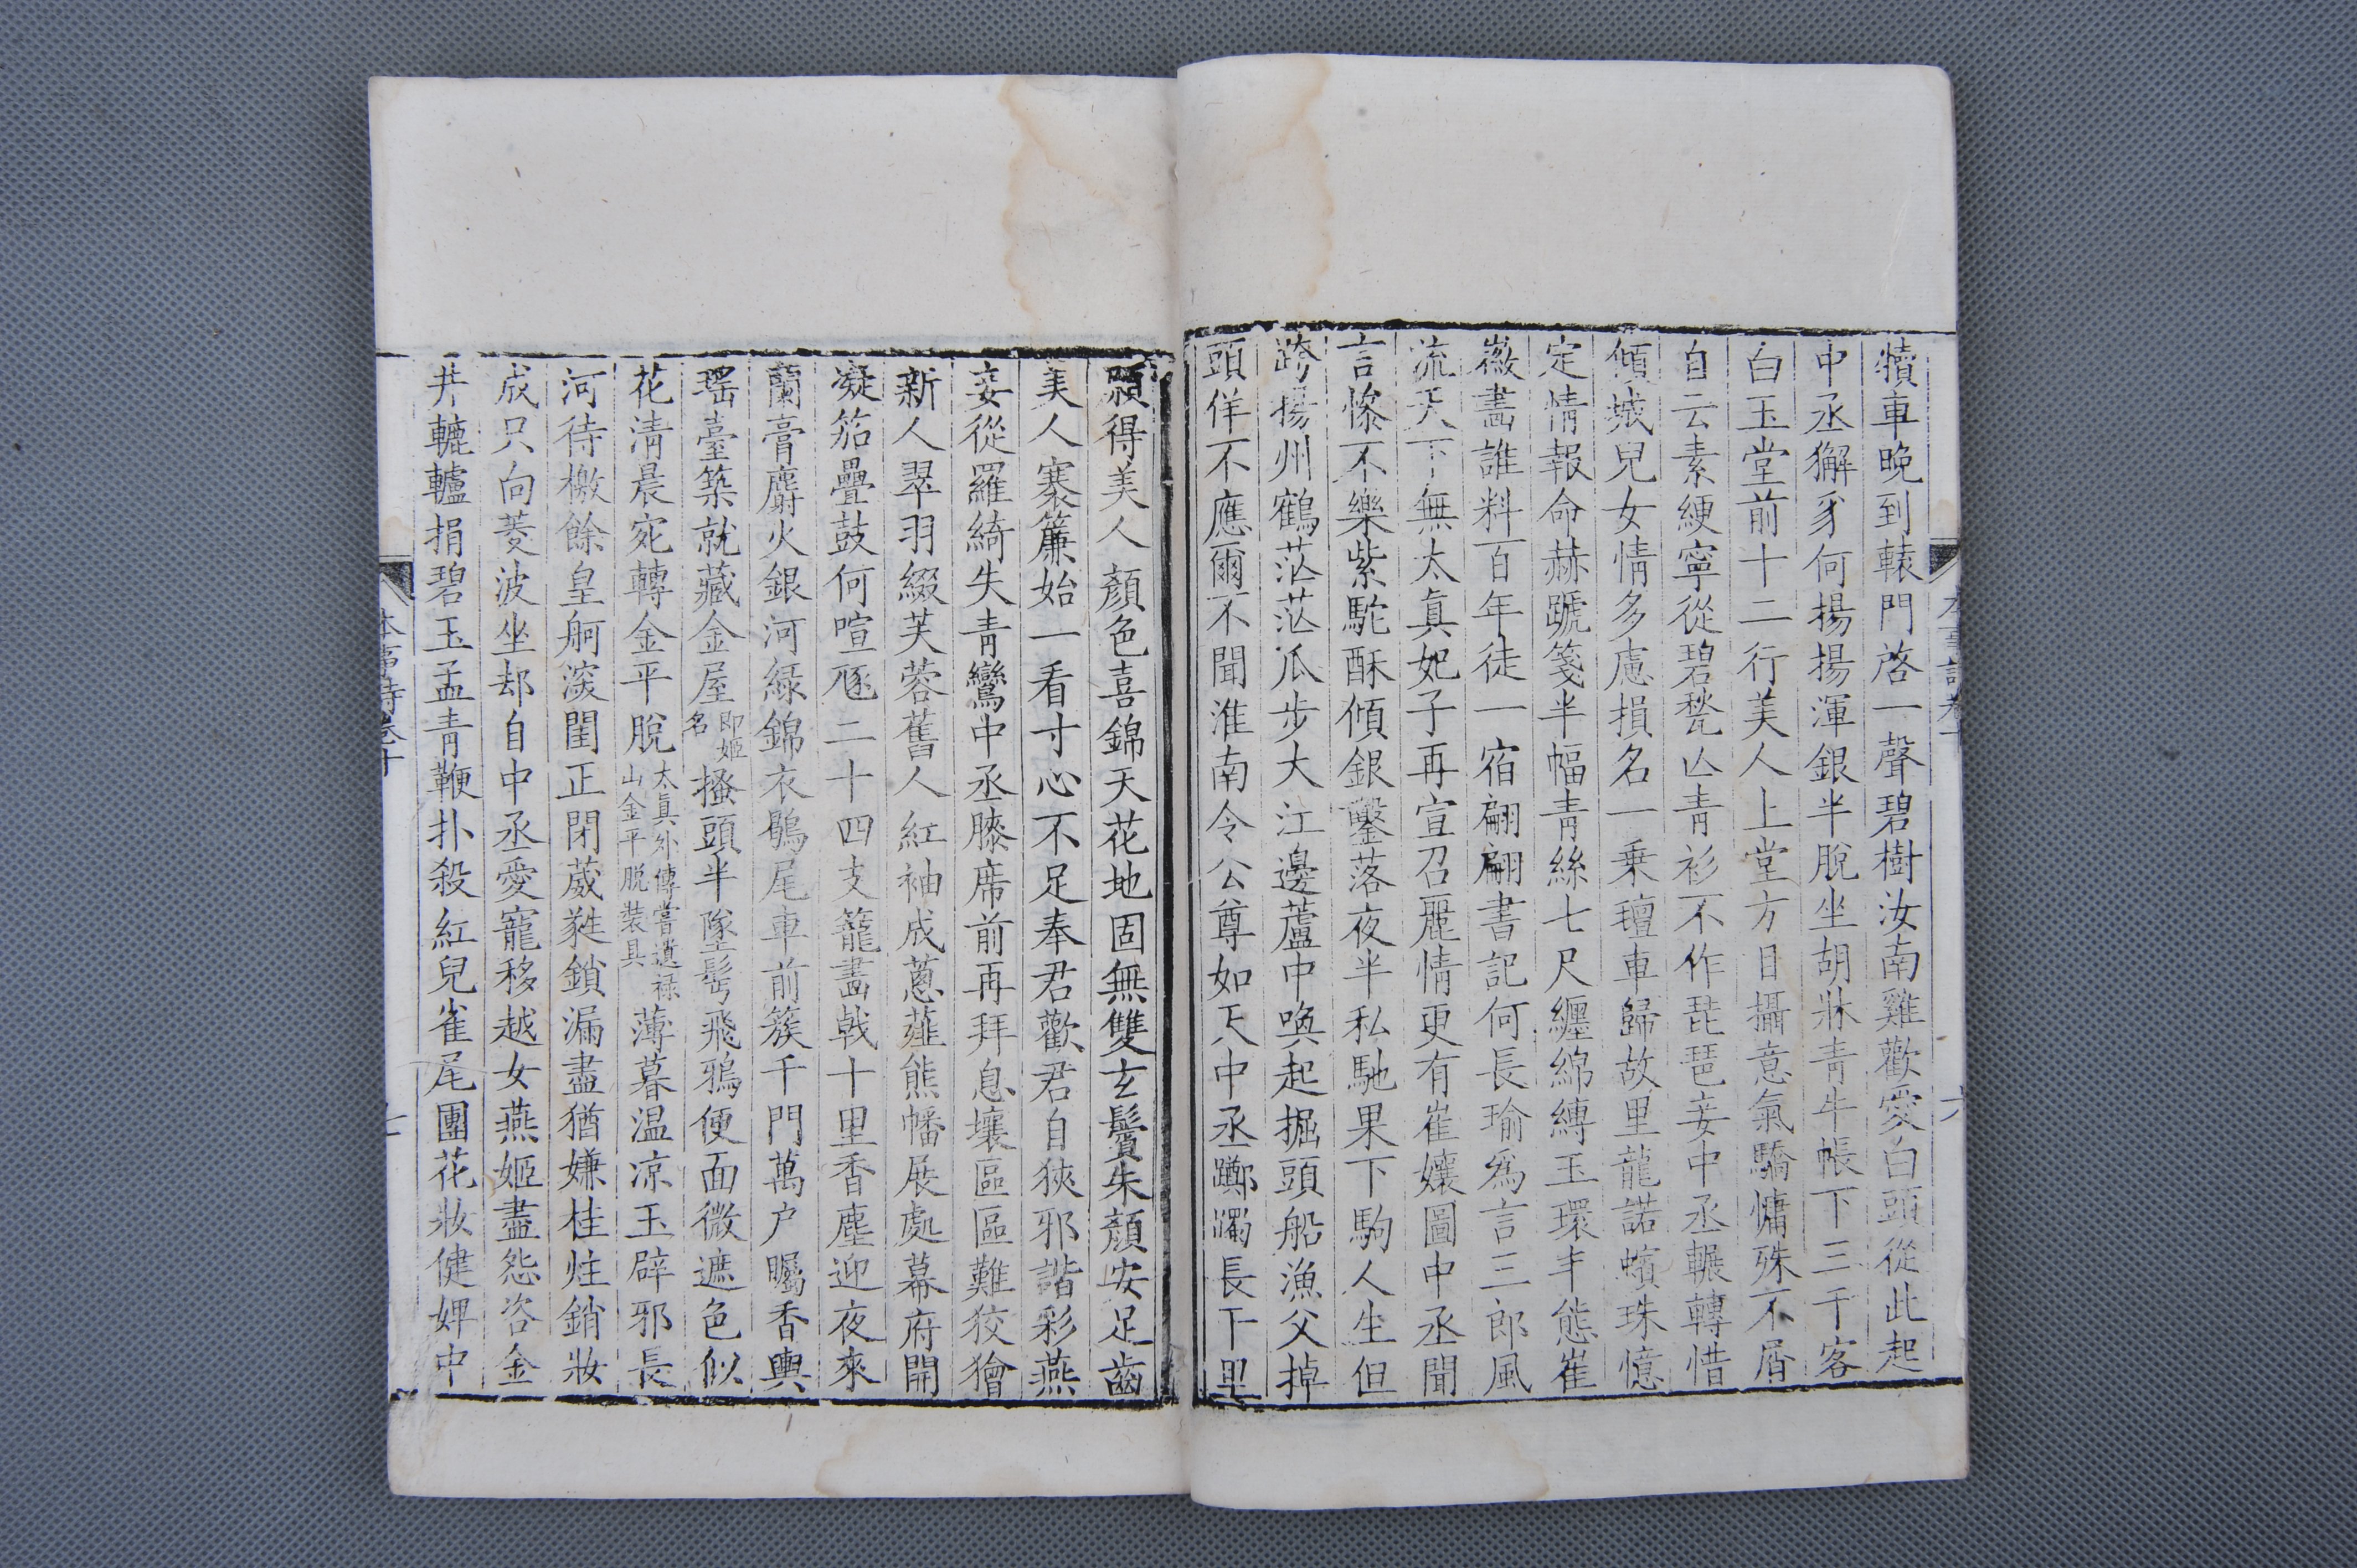 犢車晚到轅門啓一聲碧樹汝南雞歡愛白頭從此起
中丞獬豸何揚揚渾銀半脫坐胡牀青牛帳下三千客
白玉堂前十二行美人上堂方目攝意氣驕慵殊不屑
自云素綆寧從碧甃亾青衫不作琵琶妾中丞輾轉惜
傾城兒女情多慮損名一乗氊車歸故里龍諾蠙珠憶
定情報命赫蹏箋半幅青絲七尺纏綿縛玉環丰態崔
徽畵誰料百年徒一宿翩翩書記何長瑜爲言三郎風
流天下無太真妃子再宣召麗情更有崔孃圖中丞聞
言慘不樂紫駝酥傾銀鑿落夜半私馳果下駒人生但
跨揚州鶴茫茫瓜步大江邊蘆中喚起掘頭船漁父掉
頭佯不應爾不聞淮南令公尊如天中丞躑躅長下里
願得美人顏色喜錦天花地固無雙玄鬢朱顏安足齒
美人褰簾始一看寸心不足奉君歡君自狹邪諧彩燕
妾從羅綺失青鸞中丞膝席前再拜息壤區區難狡獪
新人翠羽綴芙蓉舊人紅袖成蔥薤熊幡展處幕府開
凝笳疊鼓何喧豗二十四支籠畵戟十里香塵迎夜來
蘭膏麝火銀河綠錦衣鶡尾車前簇千門萬户矚香輿
瑤臺築就藏金屋即姬名搔頭半墜墮髻飛鴉便面微遮色似
花淸晨宛轉金平脫太眞外傳嘗遺祿山金平脱裝具薄暮温凉玉辟邪長
河待檄餘皇舸深閨正閉葳蕤鎖漏盡猶嫌桂炷銷妝
成只向菱波坐却自中丞愛寵移越女燕姬盡怨咨金
井轆轤捐碧玉孟青鞭扑殺紅兒雀尾團花妝健婢中
本事詩卷十